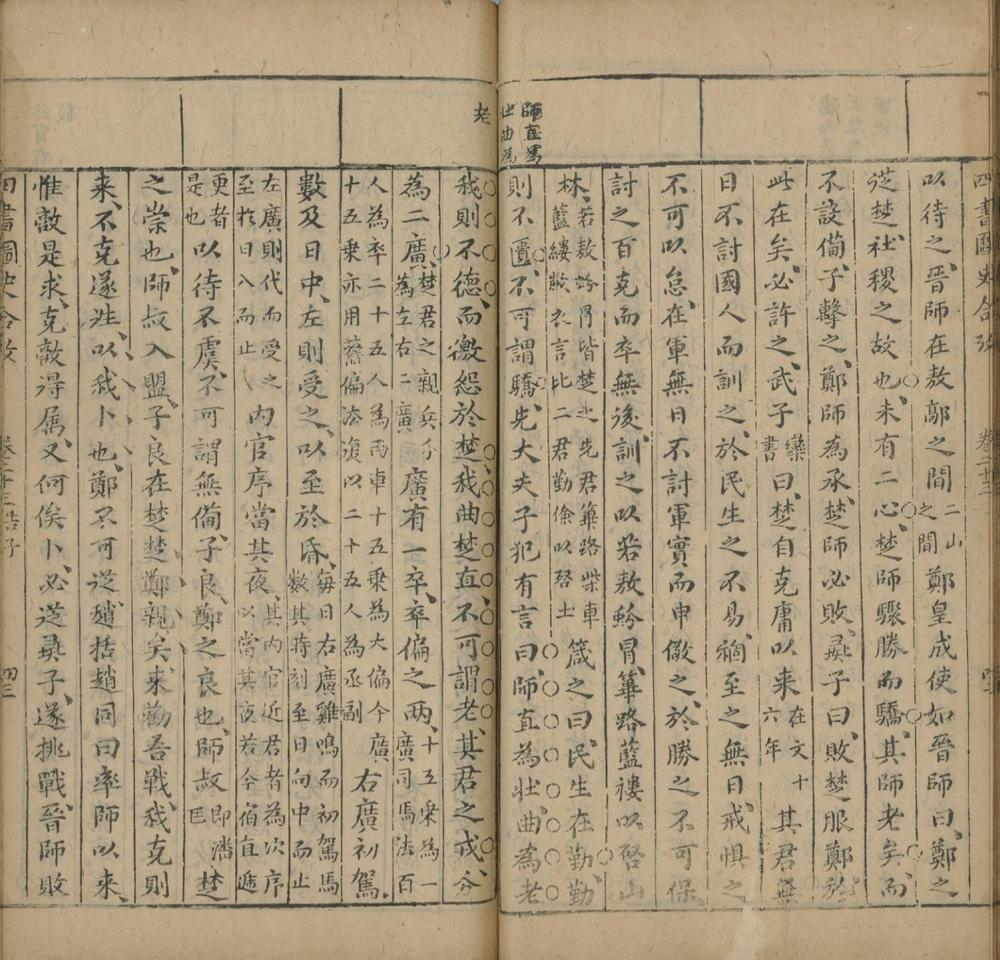 四書圖史合攷 卷二十三
以待之晉師在敖鄗之間二山之間鄭皇戌使如晉師曰鄭之
從楚社稷之故也未有二心楚師驟勝而驕其師老矣而
不設備子擊之鄭師為承楚師必敗彘子曰敗楚服鄭於
此在矣必許之武子欒書曰楚自克庸以來在文十六年其君無
日不討國人而訓之於民生之不易禍至之無日戒懼之
不可以怠在軍無日不討軍實而申儆之於勝之不可保
討之百克而卒無後訓之以若敖蚡冒篳路藍褸以啓山
林若敖蚡冒皆楚之先君篳路柴車藍縷敝衣言此二君勤儉以啓土箴之曰民生在勤勤
則不匱不可謂驕先大夫子犯有言曰師直為壯曲為老
師直為壯曲為
老
我則不德而徼怨於楚我曲楚直不可謂老其君之戎分
為二廣楚君之親兵分為左右二廣廣有一卒卒偏之兩十五乗為一廣司馬法百
人為卒二十五人為兩車十五乗為大偏今廣十五乗亦用舊偏法復以二十五人為丞副右廣初駕
數及日中左則受之以至於昏每日右廣雞鳴而初駕馬數其時刻至日向中而止
左廣則代而受之至於日入而止内官序當其夜其内官近君者為次序以當其夜若今宿直遞
更者是也以待不虞不可謂無備子良鄭之良也師叔即潘尫楚
之崇也師叔入盟子良在楚楚鄭親矣來勸吾戰我克則
來不克遂往以我卜也鄭不可從趙括趙同曰率師以來
惟敵是求克敵得属又何俟卜必從彘子遂挑戰晉師敗
四書圖史合攷 卷二十三 告子 四三